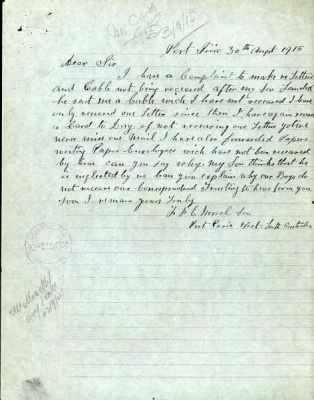 Port Pirie 30th Augst 1915
Dear Sir
I have a Complaint to make re Letters
and Cable not being received after my Son Landed
he sent me a cable wich I have not received I have
only received one letter since then I have again received
a Card to Day of not receiving one Letter yet we
never miss one Mail I have also forwarded Papers
writing Paper Envelopes wich have not been received
by him can you say why. My Son thinks that he
is neglected by us can you explain why our Boys do
not receive our Correspondence Trusting to hear from you
soon I remain yours Truly
Sen
Port Pirie West South Australia
3/9/15